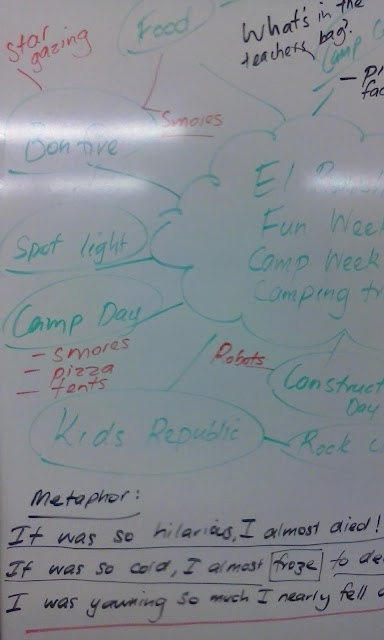 Star
gazing
Food
What's in the
teachers bag?
Camp
Smores
Bonfire
El
Fun Week
Camp Week
Camping
Spot light
Camp Day
- smores
- pizza
- tents
Robots
Construct
Day
Kids Republic
Rock
Metaphor:
It was so hilarious, I almost died!
It was so cold, I almost froze to
I was yawning so much I nearly fell